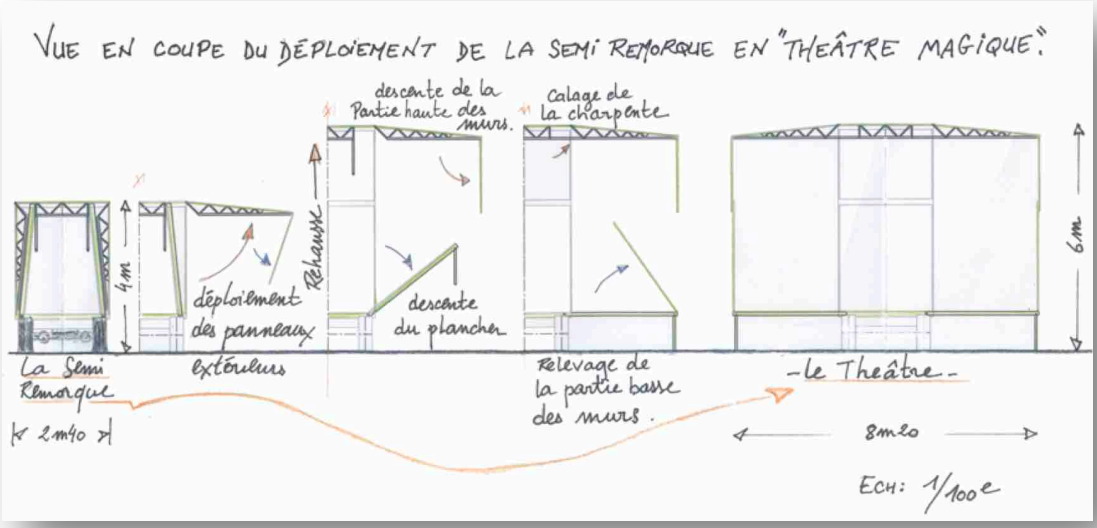 VUE EN COUPE DU DÉPLOIEMENT DE LA SEMI REMORQUE EN "THEÂTRE MAGIQUE".
descente de la
Partie haute des
murs.
Calage de
la charpente
4m
Réhausse
6m
déploiement
des panneaux
extérieurs
descente
du plancher
La Semi
Remorque
2m40
Relevage de
la partie basse
des murs.
-le Theâtre-
8m20
ECH: 1/100e